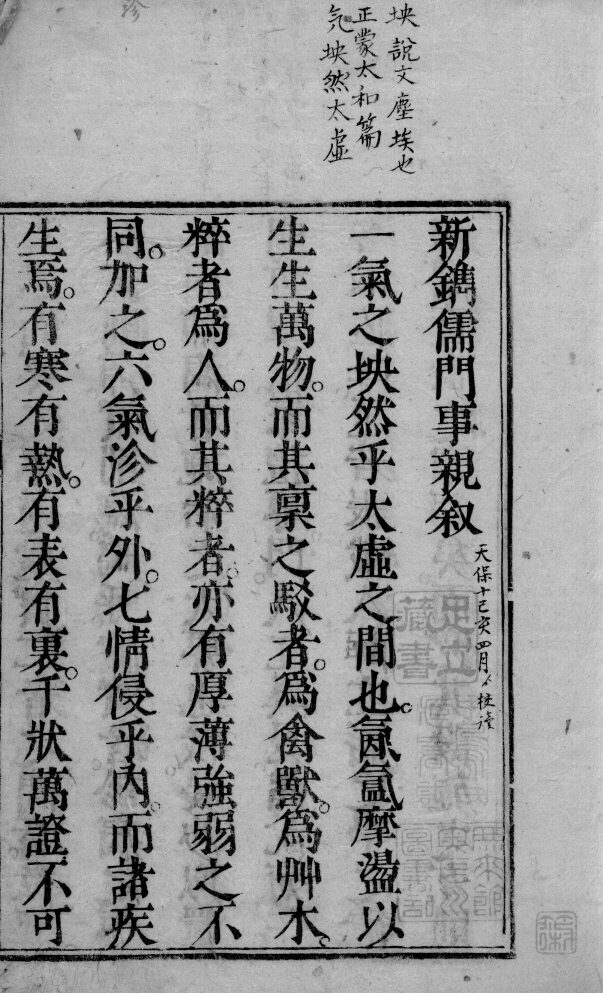 坱說文塵埃也
正蒙太和篇
气坱然太虛
新鐫儒門事親叙
天保十己亥四月
一氣之坱然乎太虛之間也。氤氳摩盪以
生生萬物。而其稟之駁者。爲禽獸。爲艸木。
粹者爲人。而其粹者。亦有厚薄強弱之不
同。加之。六氣沴乎外。七情侵乎內。而諸疾
生焉。有寒有熱。有表有裏。千狀萬證不可
足立
藏書